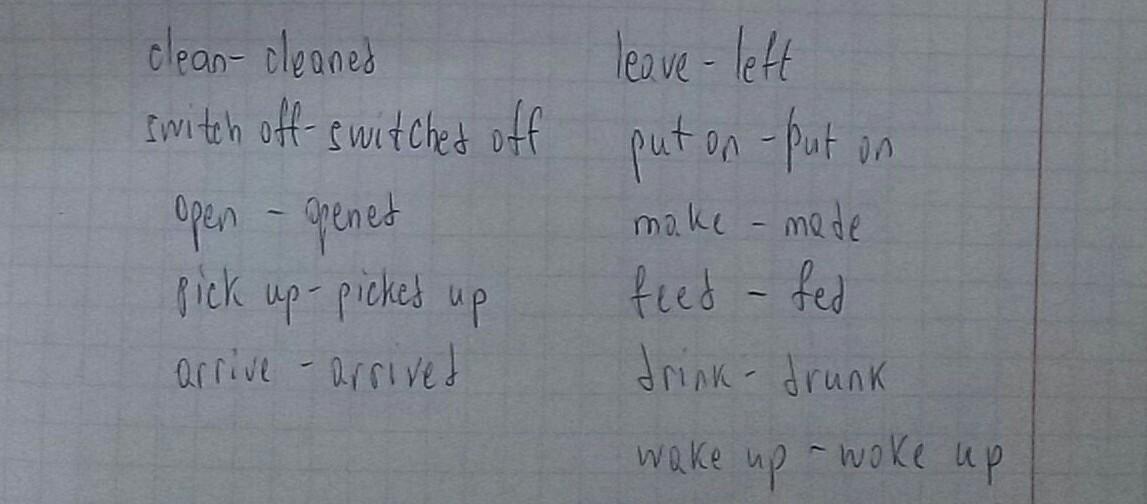 clean- cleaned
switch off-switched off
open - opened
pick up-picked up
arrive - arrived
leave - left
put on -put on
make - made
feed - fed
drink- drunk
wake up -woke up